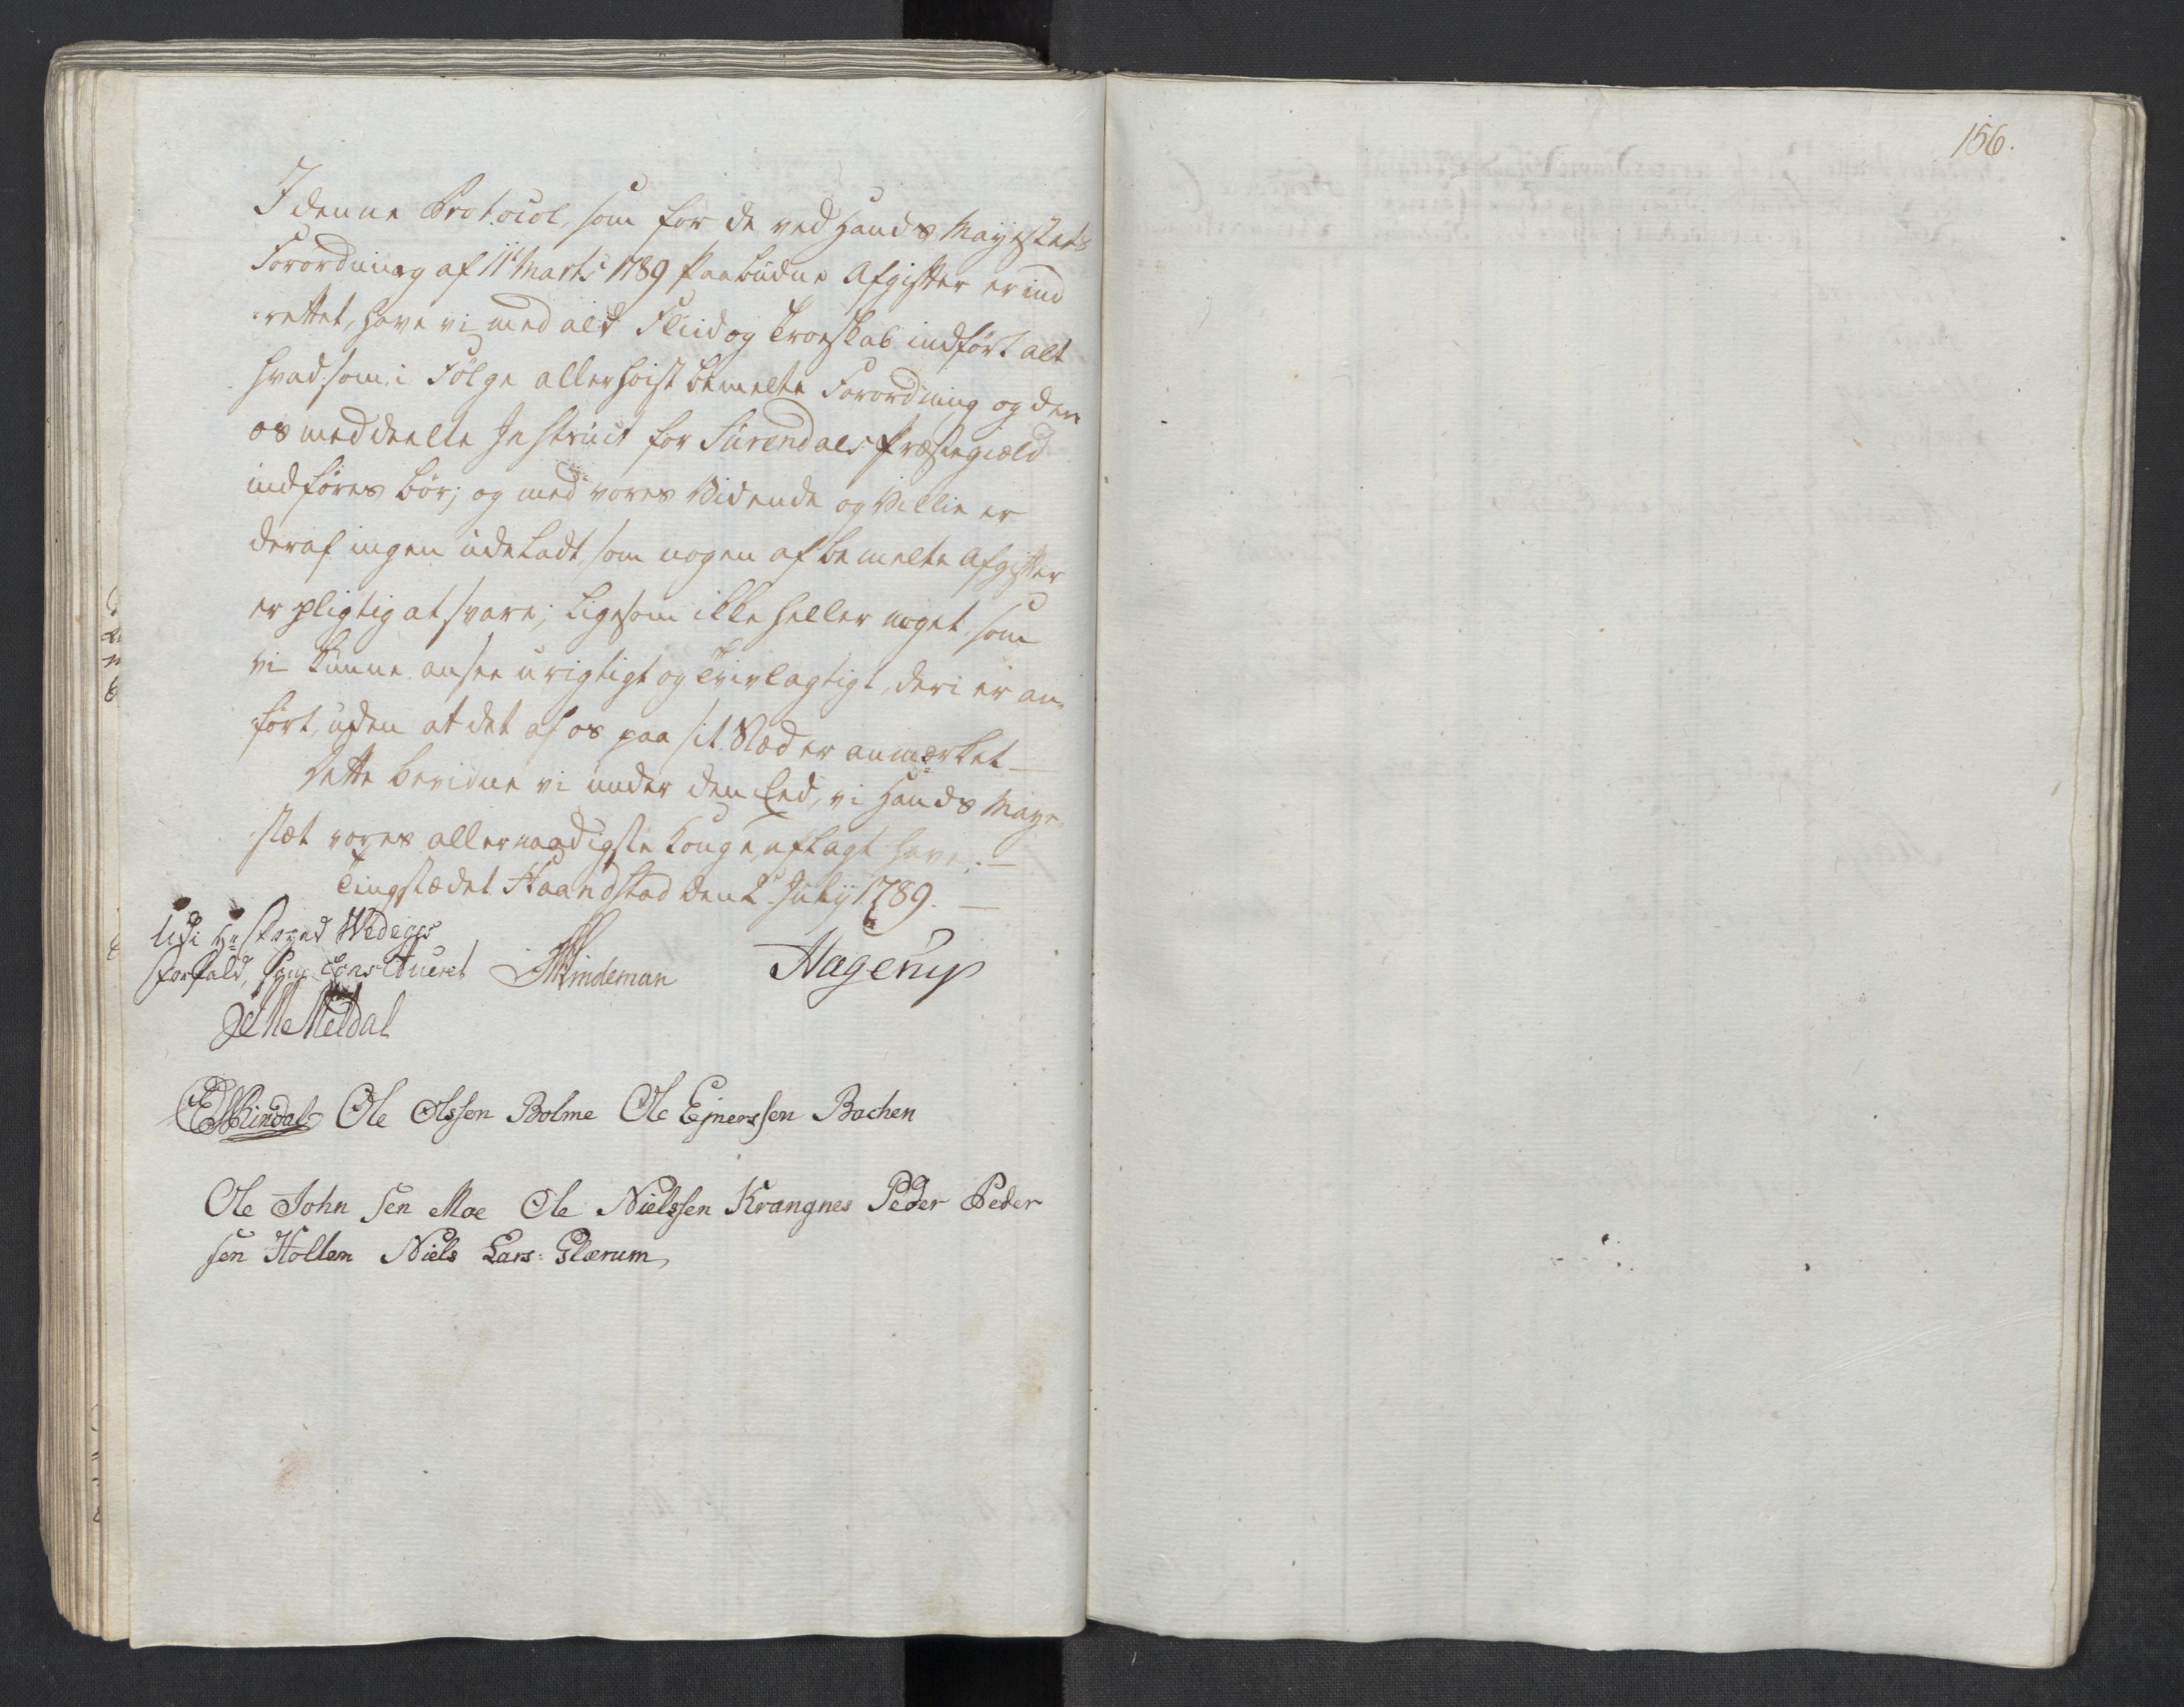 156.
I denne Protocol, som for de ved Hands Mayestets
Forordning af 11te Martii 1789 paabudne Afgifter er ind
rettet, have vi med ald Fliid og Troeskab indført alt
hvad som i Følge allerhøist bemelte Forordning og den
os meddeelte Instruct for Surendals Præstegield
indføres bør; og med vores Vidende og Villie er
deraf ingen udeladt, som nogen af bemelte Afgifter
er pligtig at svare; ligesom ikke heller noget som
vi kunne ansee urigtigt og Tvivlagtigt, deri er an-
ført, uden at det af os paa sit Stæd er anmærket —
Dette bevidne vi under den Eed, vi Hands Maye-
stæt vores allernaadigste Konge aflagt have. —
Tingstædet Haandstad den 2de July 1789. —
Udi Hr Foged Wedeges
forfald, Constitueret Lindeman Hagerup
Meldal
Ole Olssen Bolme Ole Ejnerssen Bachen
Ole John sen Moe Ole Nielssen Krangnes Peder Peder
sen Hollen Niels Lars: Glærum